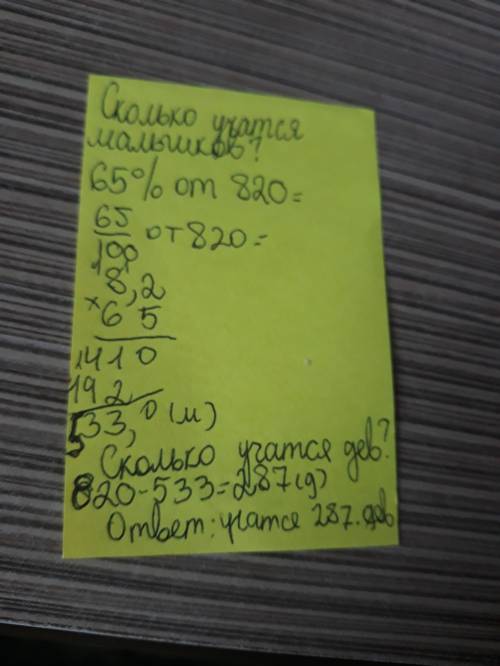 Сколько учатся
малышков?
65% от 820=
65
100 от 820=
8,2
× 6 5
1410
192
533,0 (м)
Сколько учатся дев?
820-533=287(д)
Ответ: учатся 287. дев